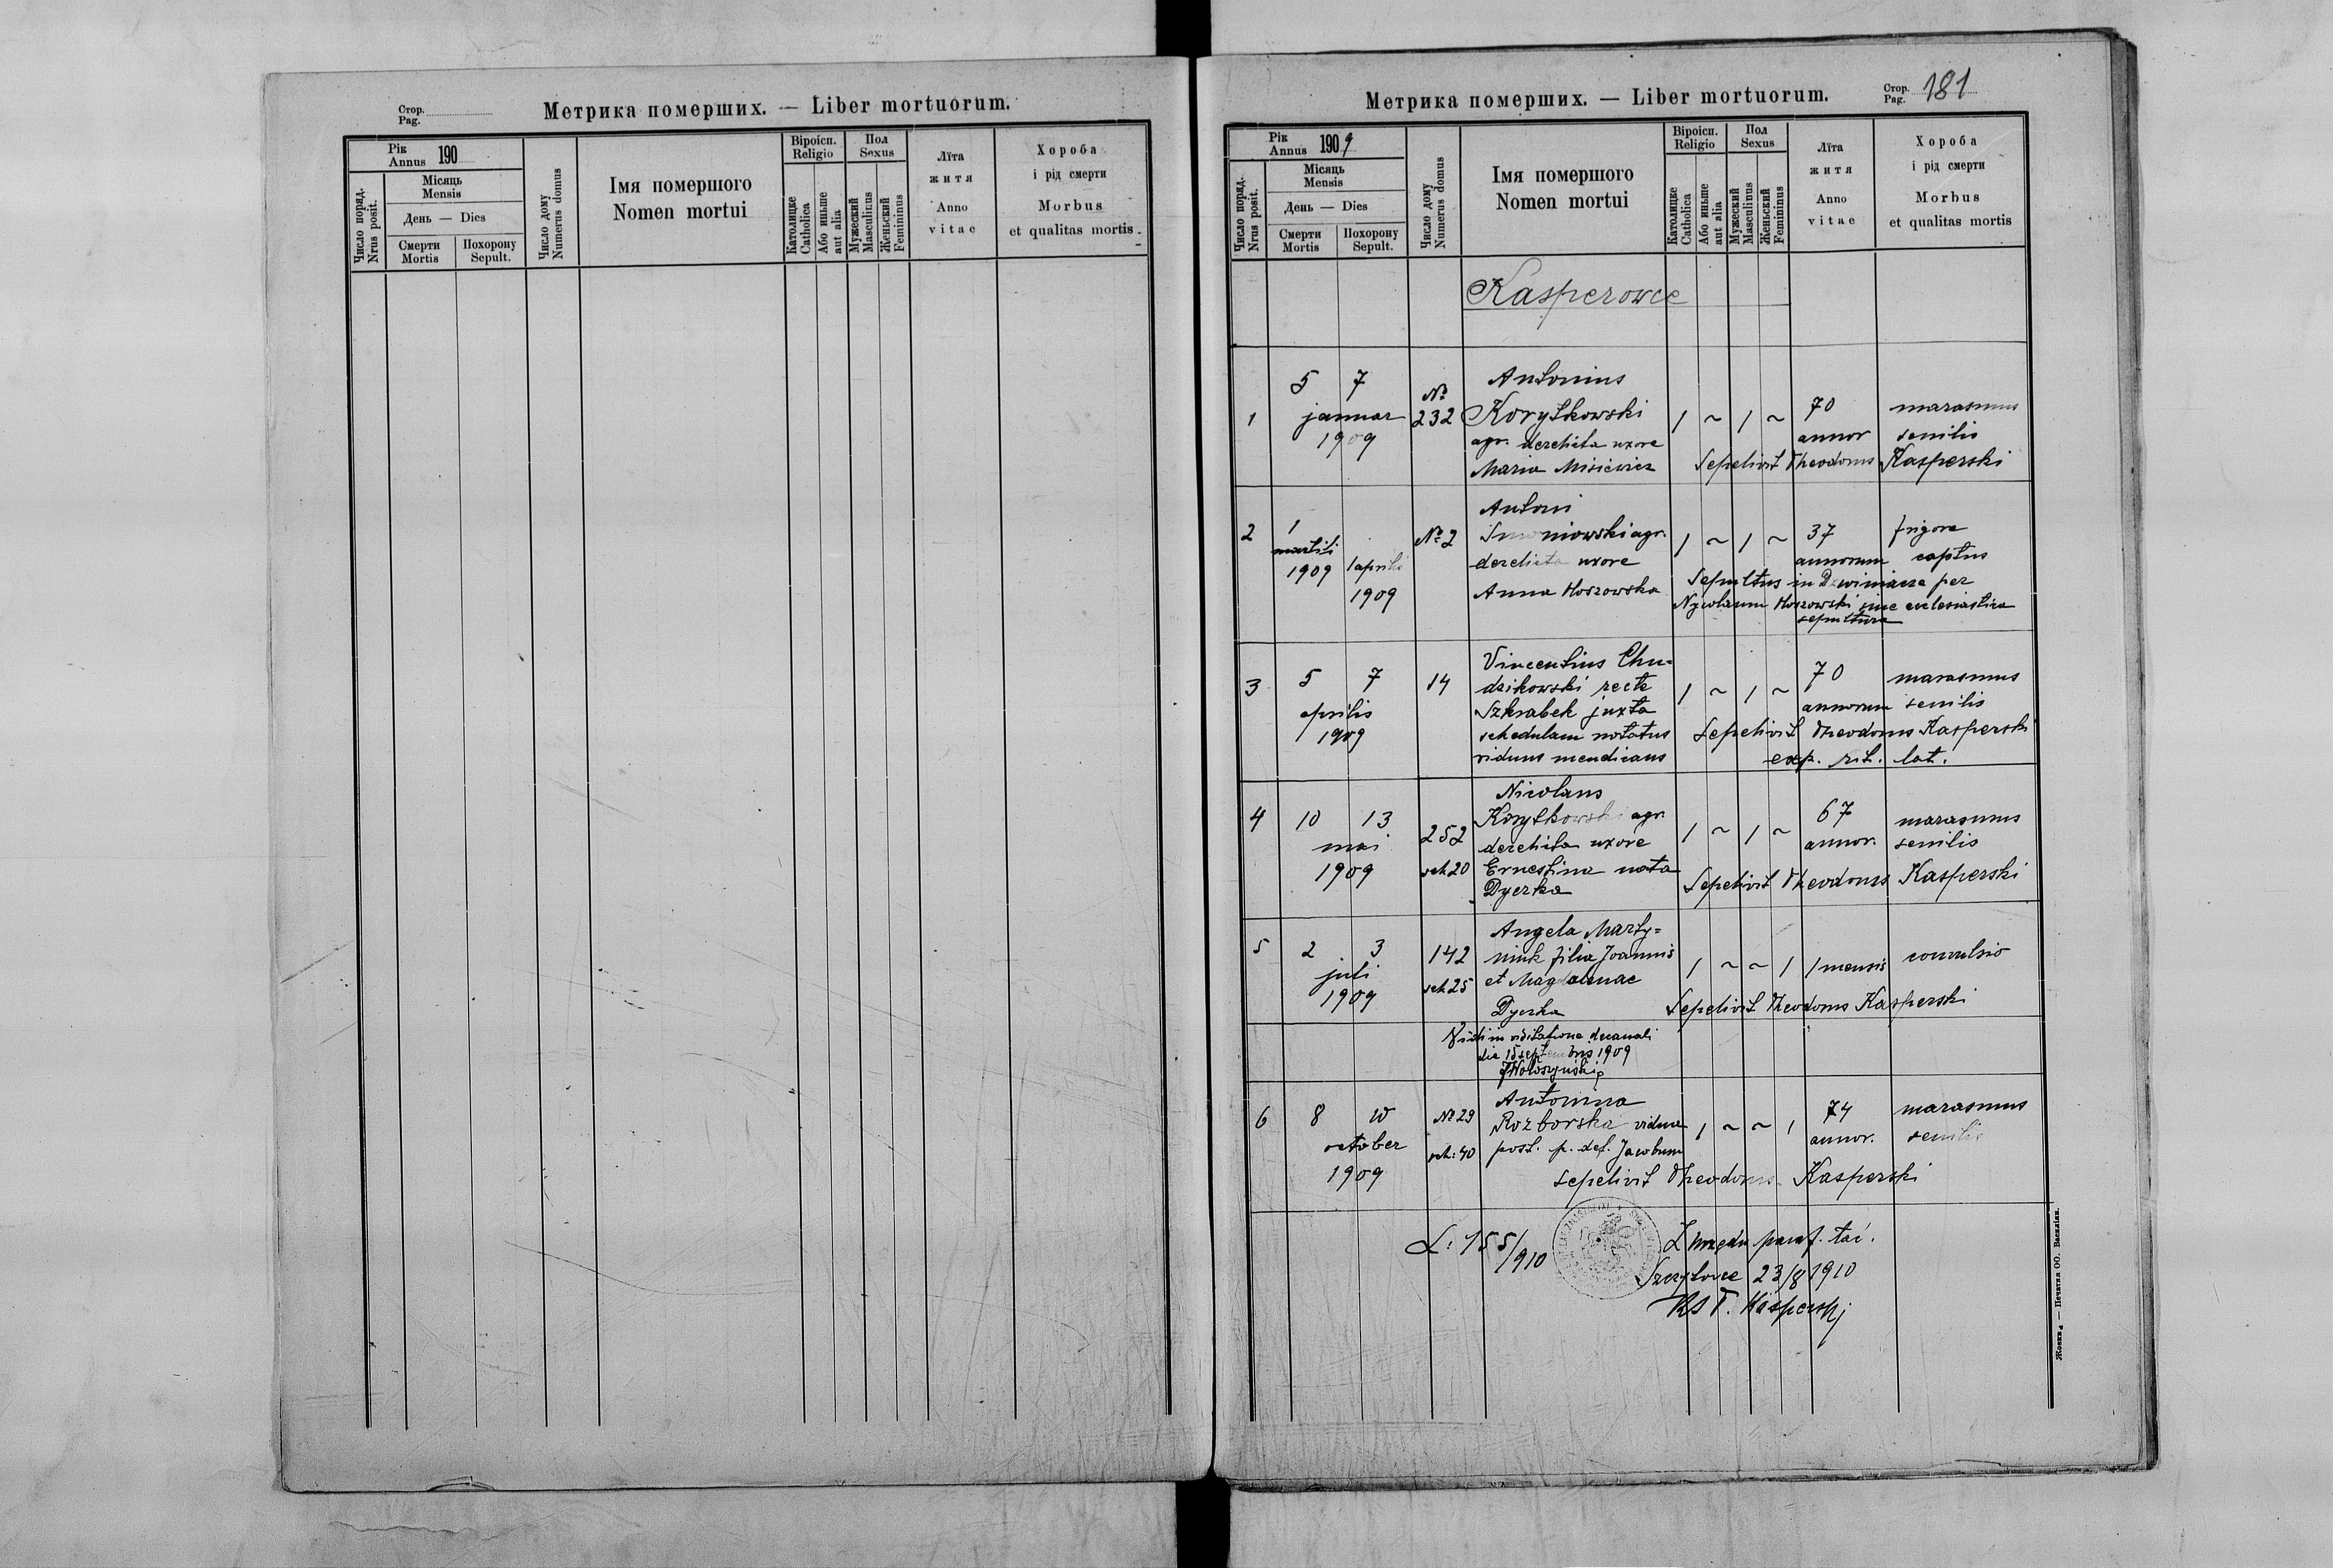 Стор.
Pag.
Метрика померших. — Liber mortuorum.
Рік
Annus 190
Місяць
Mensis
День — Dies
Число поряд.
Nrus posit.
Смерти
Mortis
Похорону
Sepult.
Число дому
Numerus domus
Імя помершого
Nomen mortui
Віроісп.
Religio
Католицке
Catholica
Або иньше
aut alia
Пол
Sexus
Мужеский
Masculinus
Женьский
Femininus
Лїта
житя
Anno
vitae
Хороба
і рід смерти
Morbus
et qualitas mortis
Метрика померших. — Liber mortuorum.
Стор.
Pag. 181
Рік
Annus 1909
Місяць
Mensis
День — Dies
Число поряд.
Nrus posit.
Смерти
Mortis
Похорону
Sepult.
Число дому
Numerus domus
Імя помершого
Nomen mortui
Віроісп.
Religio
Католицке
Catholica
Або иньше
aut alia
Пол
Sexus
Мужеский
Masculinus
Женьский
Femininus
Лїта
житя
Anno
vitae
Хороба
і рід смерти
Morbus
et qualitas mortis
Kasperowce
1
5 7
januar
1909
No
232
Antonius
Korytkowski
agr. derelicta uxore
Maria Misiewicz
1 ~ 1 ~
70
annor
marasmus
senilis
Sepelivit Theodorus Kasperski
2
1
martii
1909
1 aprilis
1909
No 2
Antoni
agr.
derelicta uxore
Anna Hoszowska
1 ~ 1 ~
37
annorum
frigore
captus
Sepultus in Dzwiniacze per
Nycolaum Hoszowski sine ecclesiastica
sepultura
3
5 7
aprilis
1909
14
Vincentius Chu=
dzikowski recte
Szkrabek juxta
schedulam notatus
viduus mendicans
1 ~ 1 ~
70
annorum
marasmus
senilis
Sepelivit Theodorus Kasperski
exp. rit. lat.
4
10 13
mai
1909
252
sch 20
Nicolaus
Korytkowski agr.
derelicta uxore
Ernestina nata
Dyczka
1 ~ 1 ~
67
annor.
marasmus
senilis
Sepelivit Theodorus Kasperski
5
2 3
juli
1909
142
sch 25
Angela Marty=
niuk filia Joannis
et Magdalenae
Dyczka
1 ~ ~ 1
1 mensis
convulsio
Sepelivit Theodorus Kasperski
Vidi in visitatione decanali
die 15 septembris 1909
JWołoszyński
6
8 10
october
1909
No 29
sch: 40
Antonina
Rozborska vidua
post. p. def. Jacobum
1 ~ ~ 1
74
annor.
marasmus
senilis
sepelivit Theodorus Kasperski
L: 155/910
Z urzędu paraf. łać.
Szczytowce 23/8 1910
Ks T. Kasperski
Жовква — Печатня ОО. Василіян.